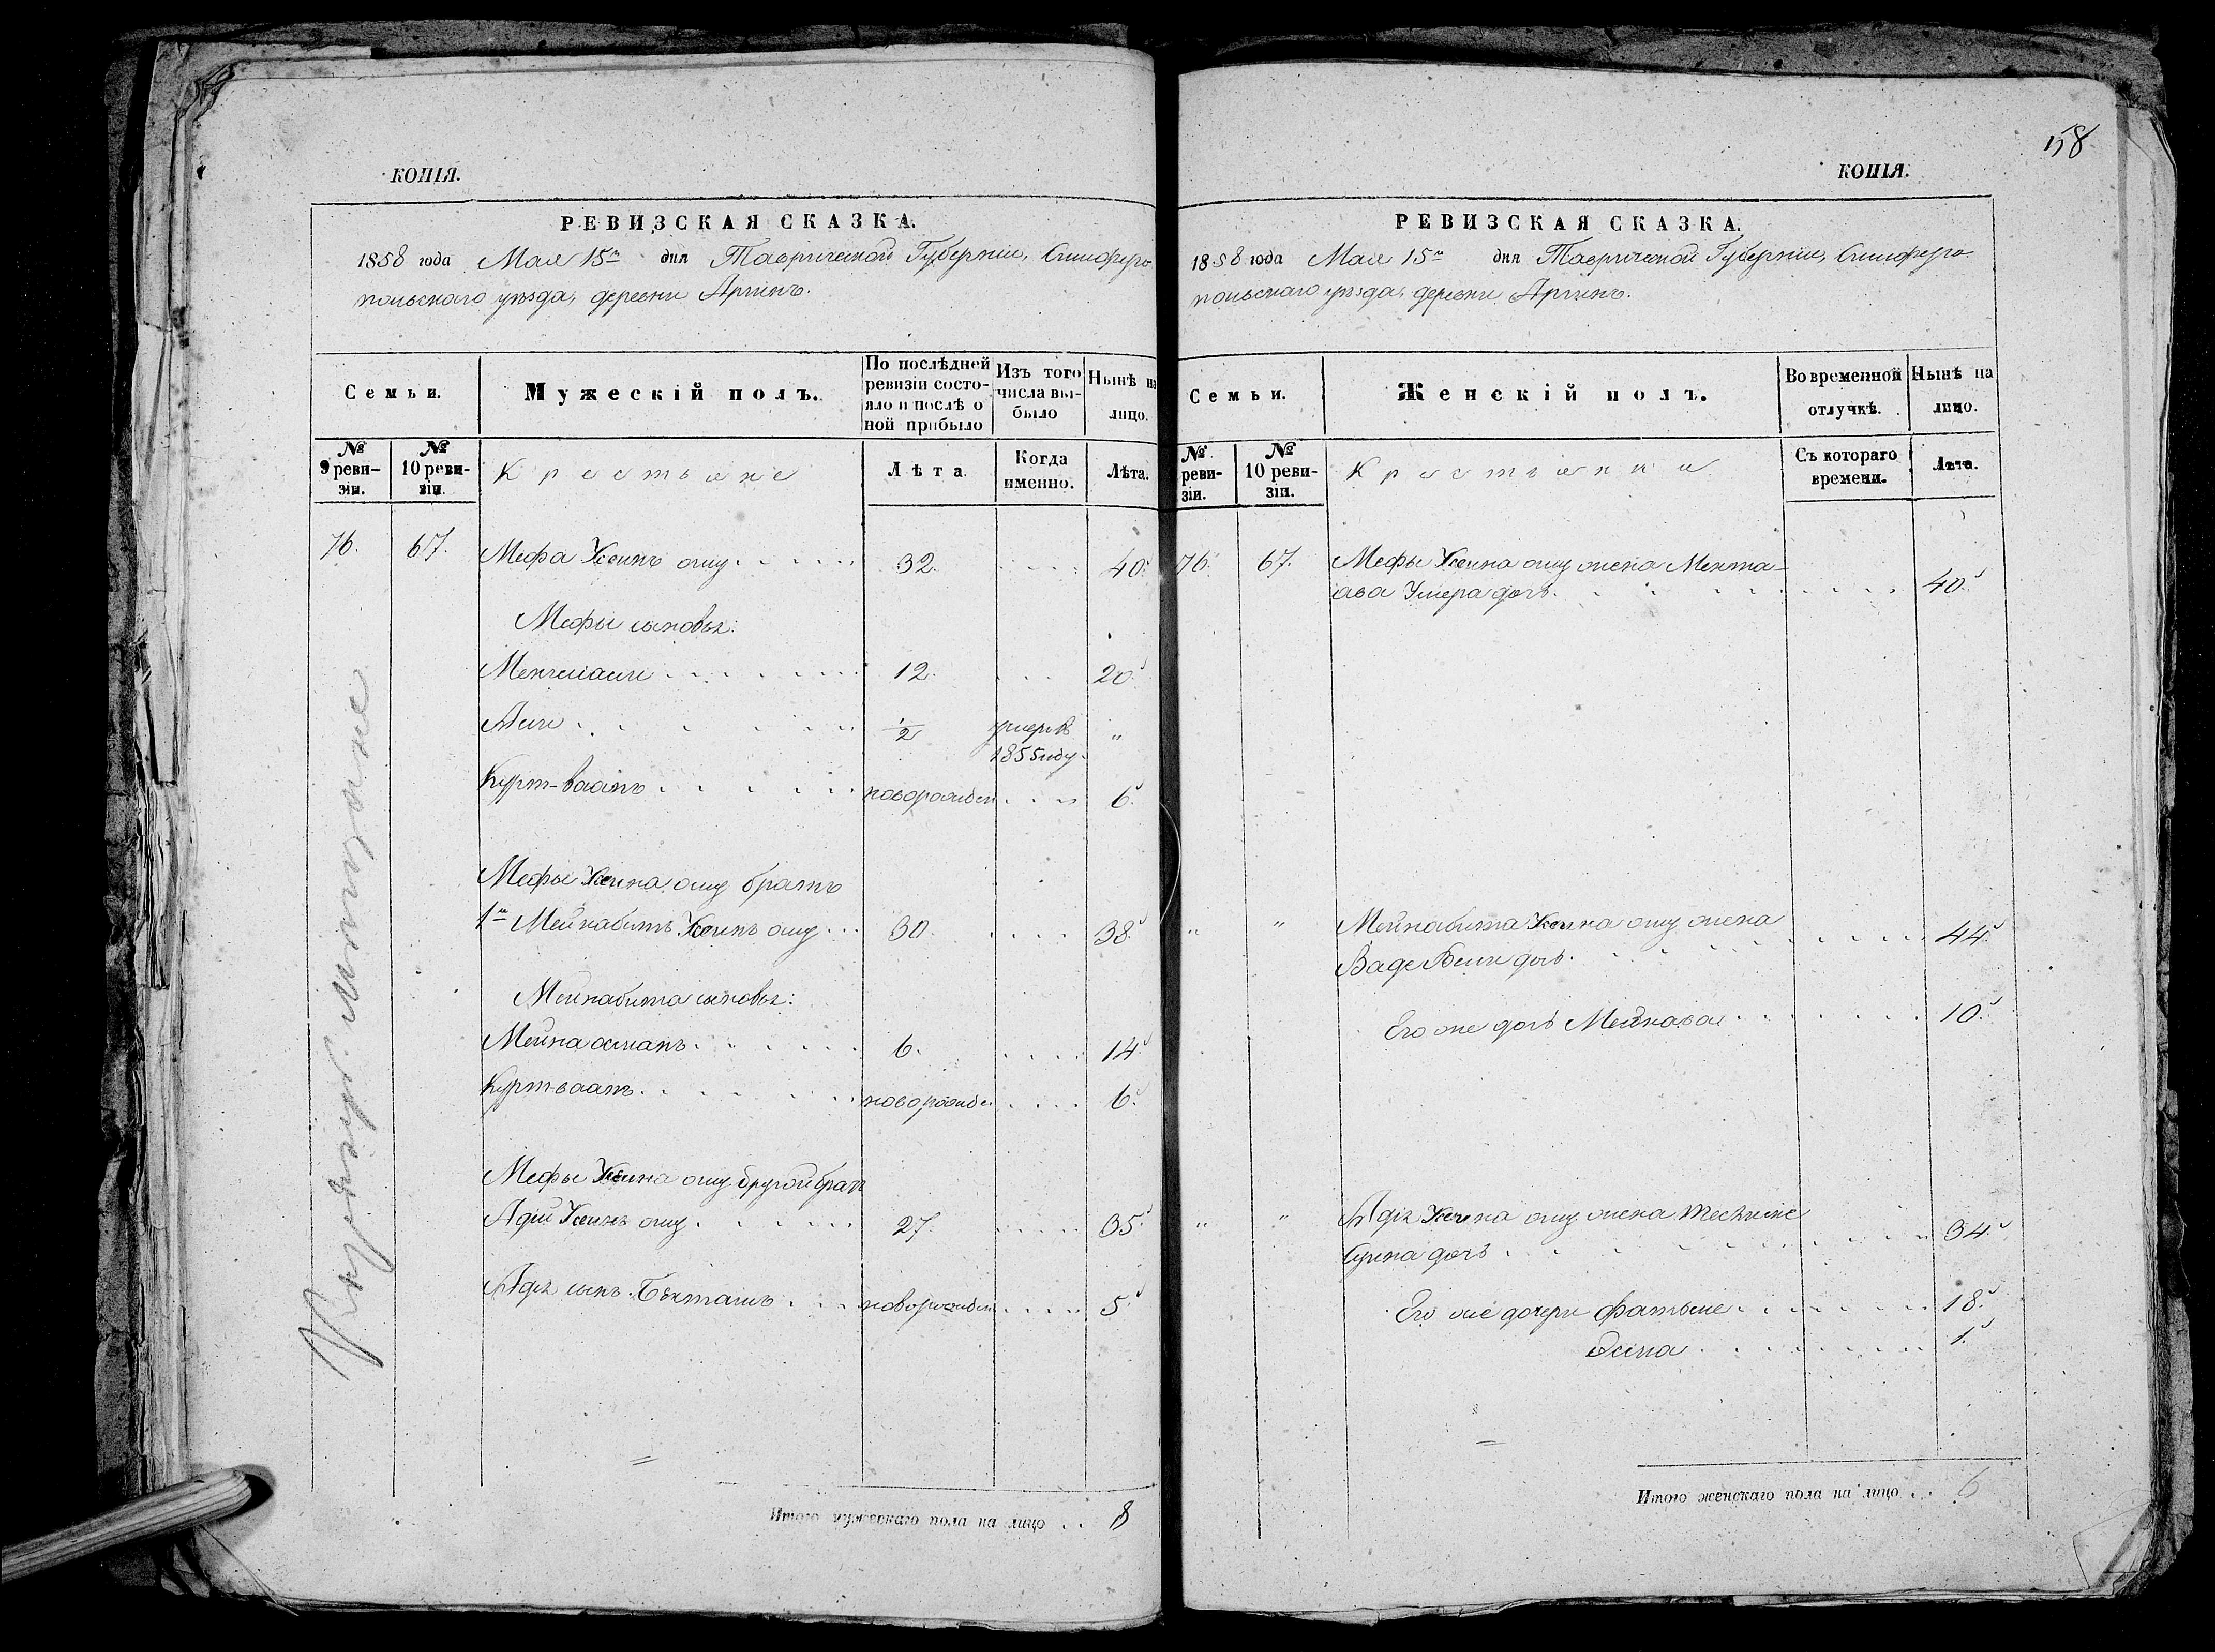 КОПІЯ.
РЕВИЗСКАЯ СКАЗКА.
1858 года Мая 15го дня Таврической Губерніи, Симферо
польскаго уѣзда, деревни Аргинъ.
Семьи.
Мужескій полъ.
По послѣдней ревизіи состо-
яло и послѣ о
ной прибыло
Изъ того
числа вы-
было
Нынѣ на
лицо.
№
9 реви-
зіи.
№
10 реви-
зіи.
Крестьяне
Лѣта
Когда
именно.
Лѣта.
76. 67. Мефа Усеинъ оглу 32. 40.
Мефы сыновья:
12. 20.
Али 1/2 умеръ въ "
1855 году.
Курт-ваапъ новорожден 6.
Мефы Усеина оглу братъ
1й Мейнабитъ Усеинъ оглу 30. 38.
Мейнабита сыновья:
Мейнаосманъ 6. 14.
Куртваапъ новорожден 6.
Мефы Усеина оглу другой брат
Адий Усеинъ оглу 27. 35.
сынъ Бекташъ новорожден 5.
Итого мужескаго пола на лицо 8
158
КОПІЯ.
РЕВИЗСКАЯ СКАЗКА.
1858 года Мая 15го дня Таврической Губерніи, Симферо
польскаго уѣзда, деревни Аргинъ.
Семьи.
Женскій полъ.
Во временной
отлучкѣ.
Нынѣ на
лицо.
№
реви-
зіи.
№
10 реви-
зіи.
Крестьянки
Съ котораго
времени.
Лѣта.
76. 67. Мефы Усеина оглу жена
Умера дочь 40.
" " Мейнабита Усеина оглу жена
дочь 44.
Его же дочь 10.
" " Усеина оглу жена
дочь 34.
Его же дочери Фатьме 18.
1.
Итого женскаго пола на лицо 6